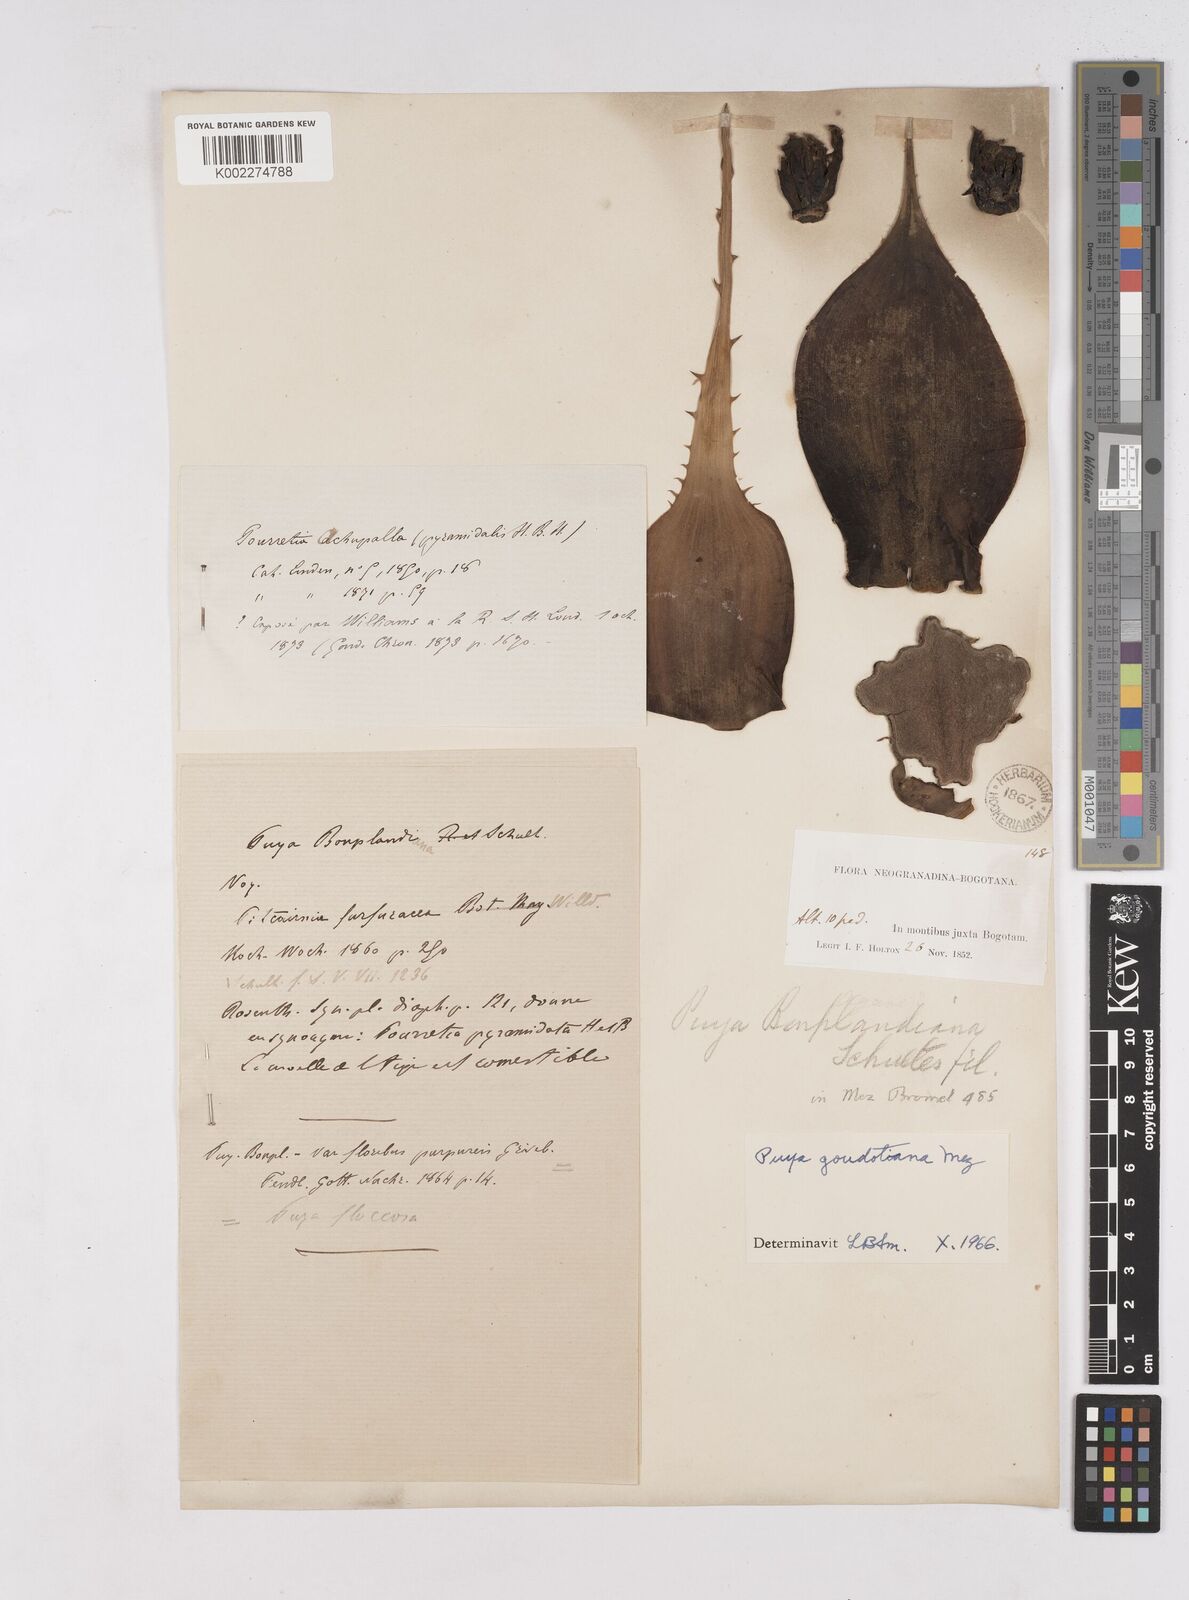 ROYAL BOTANIC GARDENS KEW
K002274788
Tourretia Achupalla (pyramidalis H. B. H)
Cat. Linden, n° 5, 1850, p. 18
" " 1871 p. 59
? Exposé par Williams à la R. S. H. Lond. 1 oct.
1873 (Gard. Chron. 1873 p. 1670
Puya Bonplandiana Schult.
Noy.
Pitcairnia furfuracea Bot. Mag Willd.
Koch. Woch. 1860 p. 250
Schult. f. S. V. VII. 1236
Rosenth. Syn. pl. diaph. p. 121, donne
en synonyme: Pourretia pyramidata H et B
La moelle de l tige est comestible
Puy. Bonpl. - var floribus purpureis Griseb.
Fendl. Gott. Nachr. 1864 p. 14.
= Puya floccosa
HERBARIUM
HOOKERIANUM
1867.
148
FLORA NEOGRANADINA-BOGOTANA.
Alt. 10 ped.
In montibus juxta Bogotam.
LEGIT I. F. HOLTON 26 Nov. 1852.
Puya Bonplandiana
Schultes fil.
in Mez Bromel 485
Puya goudotiana Mez
Determinavit LBSm. X. 1966.
inch
Density
Don Williams
centimeters
M001047
Royal Botanic Gardens
Kew
copyright reserved
0 1 2 3 4 5 6 7 8 9 10
cm